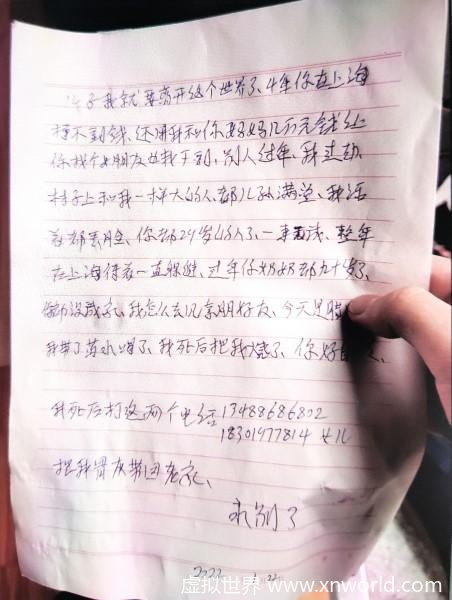 儿子我就要离开这个世界了、4年你在上海
挣不到钱、还用我和你妈妈几万元钱让
你找个女朋友也找不到、别人过年、我过劫
村子上和我一样大的人、都儿孙满堂、我活
着都丢脸、你都29岁的人了、一事无成、整年
在上海待着一直躲避、过年你奶奶都九十岁了、
你都没成家、我怎么去见亲朋好友、今天是腊
我带了 水喝了、我死后把我烧了、你好自
我死后打这两个电话13488686802
18301977814 女儿
把我骨灰带回老家、
永别了
2022
虚拟世界 www.xnworld.com